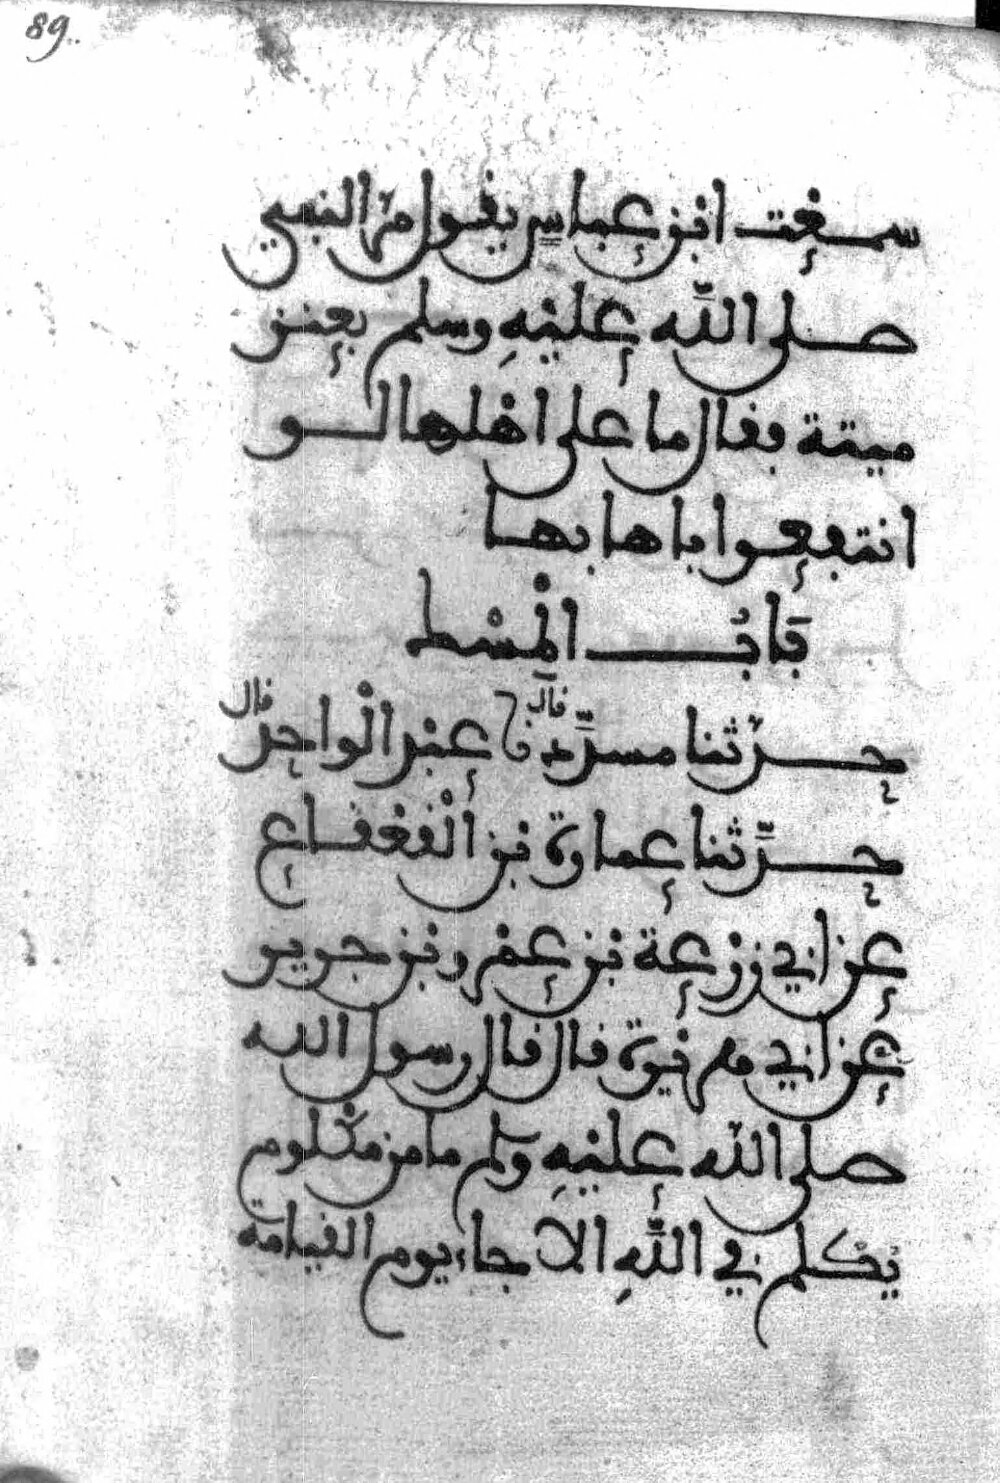 89
سمعت ابن عباس يقول مر النبي
صلى الله عليه وسلم بعنز
ميتة فقال ما على اهلها لو
انتفعوا باهابها
باب المسك
حدثنا مسدد قال نا عبد الواحد قال
حدثنا عمارة بن القعقاع
عن ابي زرعة بن عمرو بن جرير
عن ابي هريرة قال قال رسول الله
صلى الله عليه وسلم ما من مكلوم
يكلم في الله الا جاء يوم القيامة